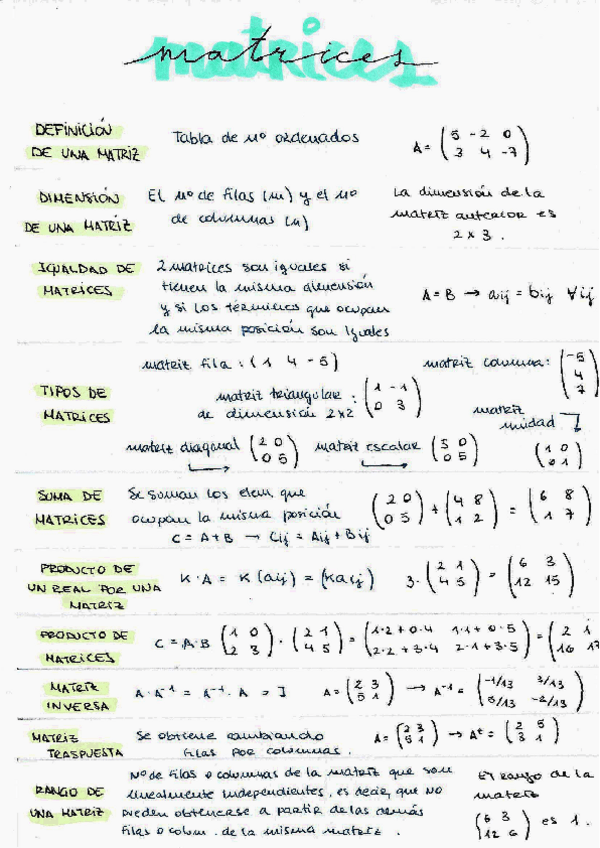 matrices
DEFINICIÓN DE UNA MATRIZ
Tabla de nº ordenados
A = (5 -2 0
3 4 -7)
DIMENSIÓN DE UNA MATRIZ
El nº de filas (m) y el nº
de columnas (n)
La dimensión de la
matriz anterior es
2 x 3.
IGUALDAD DE MATRICES
2 matrices son iguales si
tienen la misma dimensión
y si los términos que ocupan
la misma posición son iguales
A = B → aij = bij ∀ij
TIPOS DE MATRICES
matriz fila: (1 4 -5)
matriz columna: (-5
4
7)
matriz triangular :
de dimensión 2x2
(1 -1
0 3)
matriz
unidad
(1 0
0 1)
matriz diagonal (2 0
0 5)
matriz escalar (5 0
0 5)
SUMA DE MATRICES
Se suman los elem. que
ocupan la misma posición
C = A+B → Cij = Aij + Bij
(2 0
0 5) + (4 8
1 2) = (6 8
1 7)
PRODUCTO DE
UN REAL POR UNA
MATRIZ
K·A = K(aij) = (kaij)
3·(2 1
4 5) = (6 3
12 15)
PRODUCTO DE
MATRICES
C = A·B (1 0
2 3) · (2 1
4 5) = (1·2+0·4 1·1+0·5
2·2+3·4 2·1+3·5) = (2 1
16 17
MATRIZ
INVERSA
A·A⁻¹ = A⁻¹·A = I
A = (2 3
5 1) → A⁻¹ = (-1/13 3/13
5/13 -2/13)
MATRIZ
TRASPUESTA
Se obtiene cambiando
filas por columnas.
A = (2 3
5 1) → Aᵗ = (2 5
3 1)
RANGO DE
UNA MATRIZ
Nº de filas o columnas de la matriz que son
linealmente independientes, es decir, que no
pueden obtenerse a partir de las demás
filas o colum. de la misma matriz.
El rango de la
matriz
(6 3
12 6) es 1.